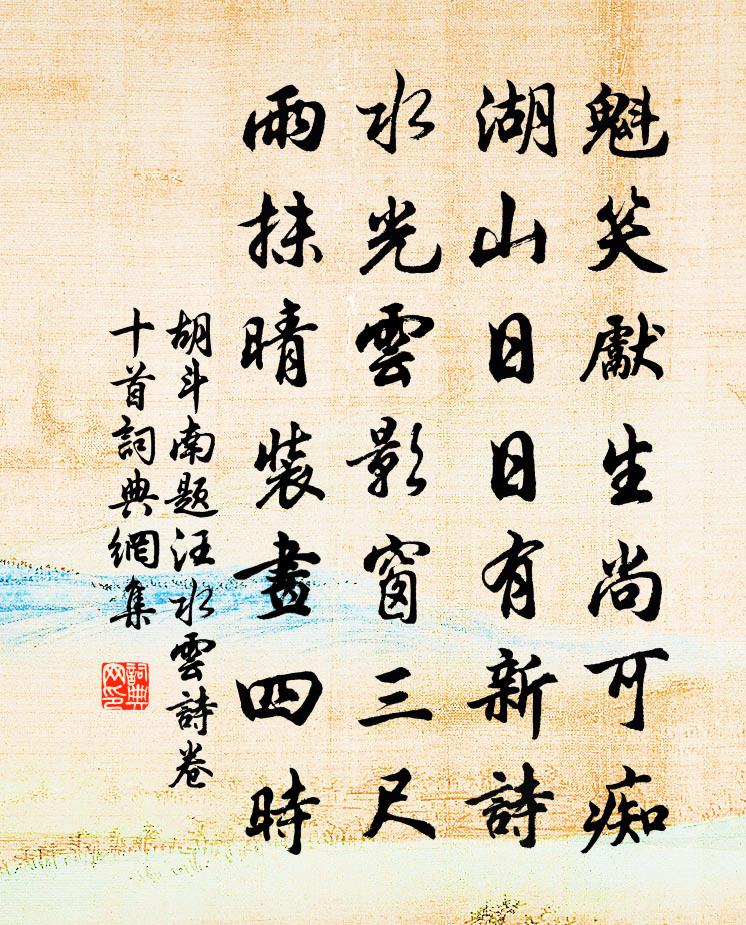 魁笑獻生尚可痴
湖山日日有新詩
水光雲影窗三尺
雨抹晴裝畫四時
胡斗南題汪水雲詩卷
十首詞典網集
詞典
网印